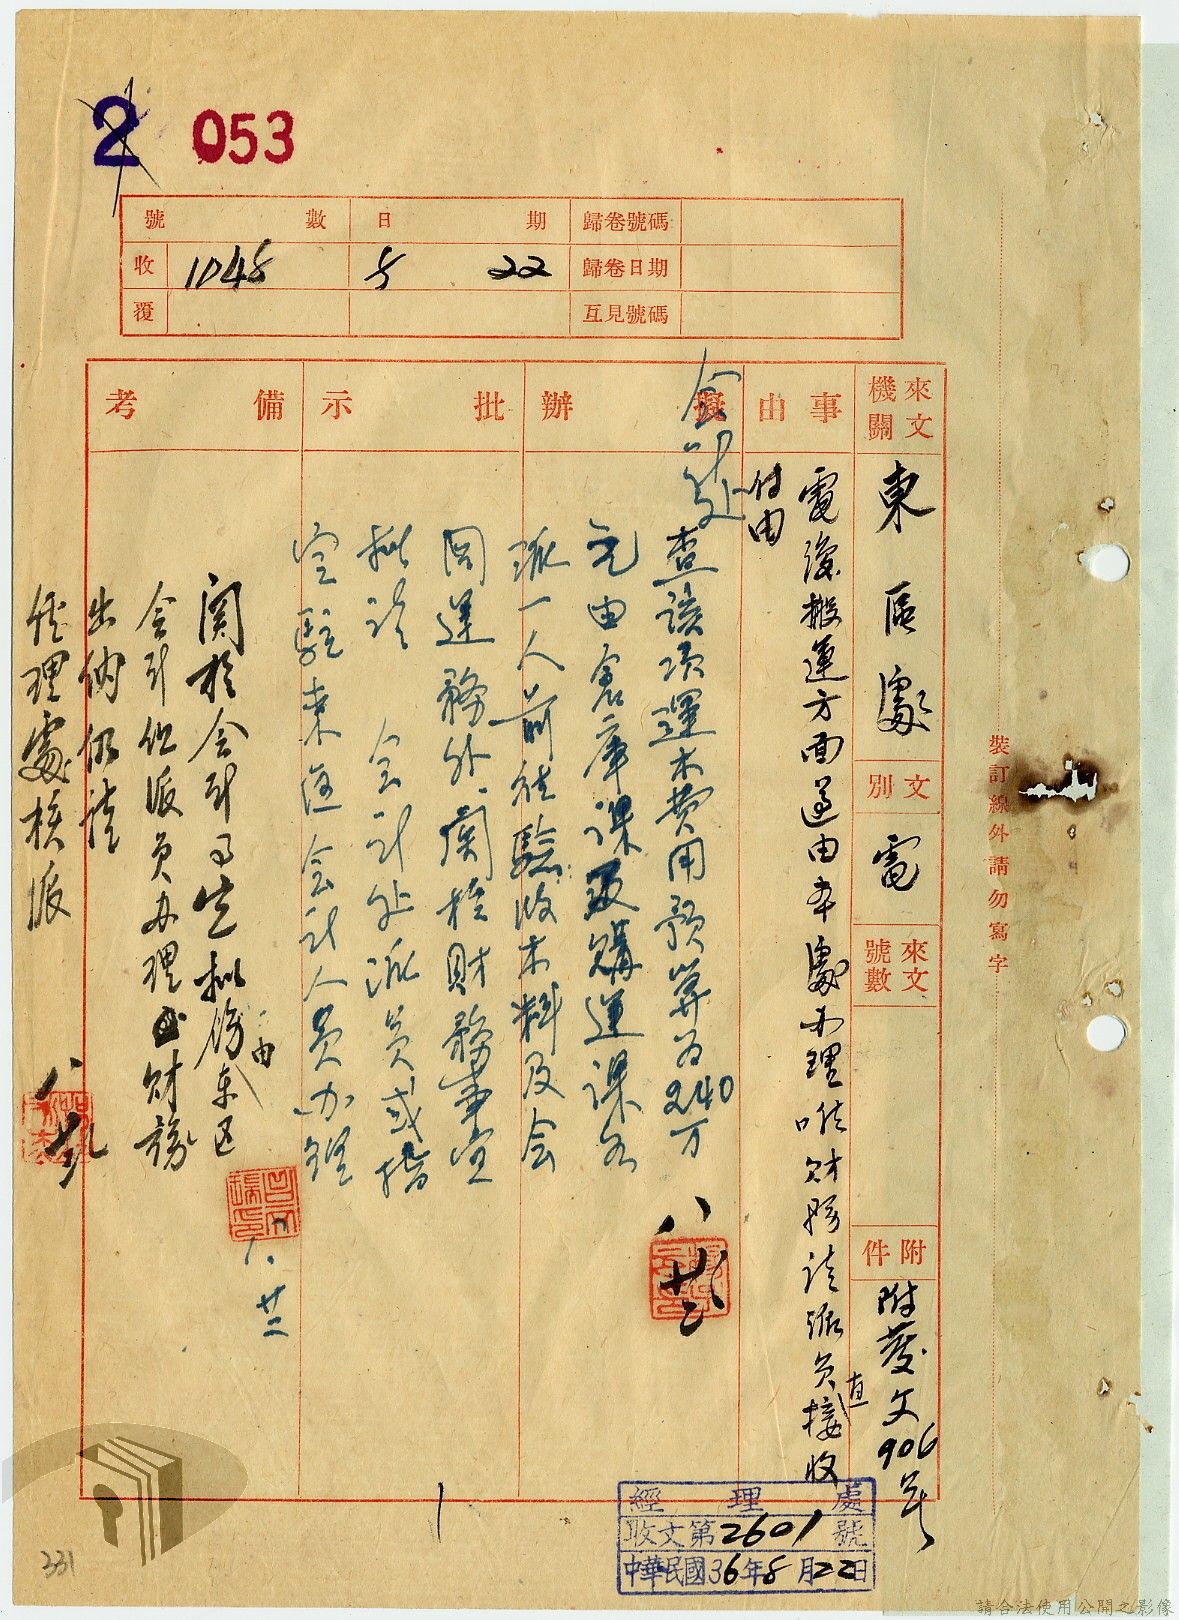 2 053
號數 日期 歸卷號碼
收 1048 8 22 歸卷日期
覆 互見號碼
來文機關
東區處
文別
電
來文號數
附件
附發文906號
事由
電復搬運方面遵由本處办理唯財務請派員直接收
付由
擬辦
会計处
查該項運木費用預算為240万
元由倉庫課及購運課各
派一人前往驗收木料及会
同運務外関於財務事宜
擬請 会計处派員或指
定駐東区会計人員办理
八 廿二
批示
関於会計事宜擬飭由東区
会計组派员办理財務
出纳仍請
經理處核派
八 廿二
備考
裝訂線外請勿寫字
經理處
收文第2601號
中華民國36年8月22日
331
請合法使用公開之影像